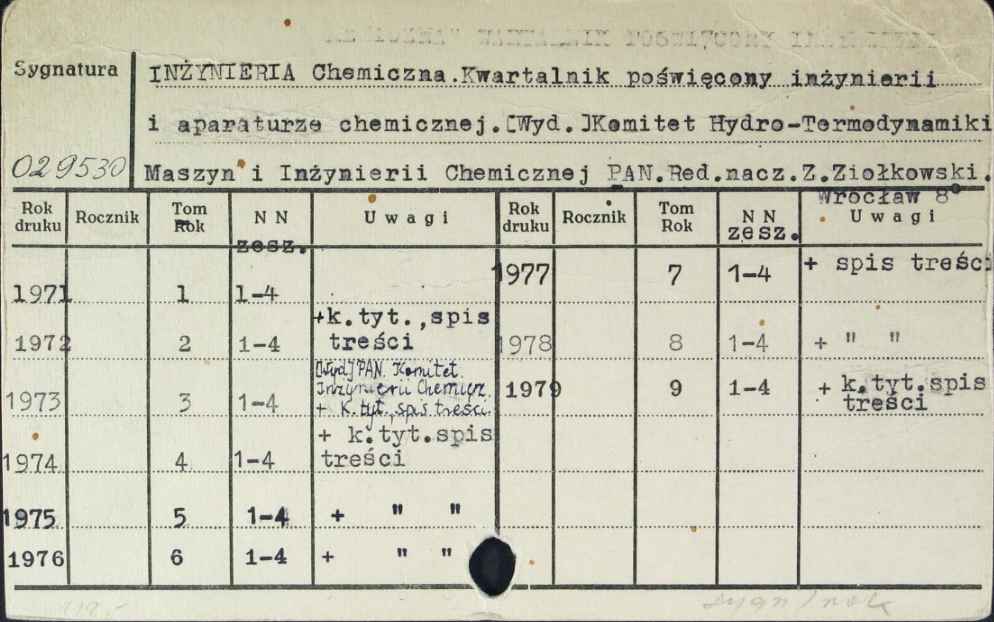 Sygnatura
INŻYNIERIA Chemiczna.Kwartalnik poświęcony inżynierii
i aparaturze chemicznej.[Wyd.]Komitet Hydro-Termodynamiki
029530 Maszyn i Inżynierii Chemicznej PAN.Red.nacz.Z.Ziołkowski.
Wrocław 8°
Rok druku Rocznik Tom Rok N N zesz. Uwagi Rok druku Rocznik Tom Rok N N zesz. Uwagi
1971 1 1-4
1972 2 1-4 +k.tyt.,spis treści
1973 3 1-4 [Wyd] PAN. Komitet.
Inżynierii Chemicz.
+ k.tyt., spis treści.
1974 4 1-4 + k.tyt.spis treści
1975 5 1-4 + " "
1976 6 1-4 + " "
1977 7 1-4 + spis treści
1978 8 1-4 + " "
1979 9 1-4 + k.tyt.spis treści